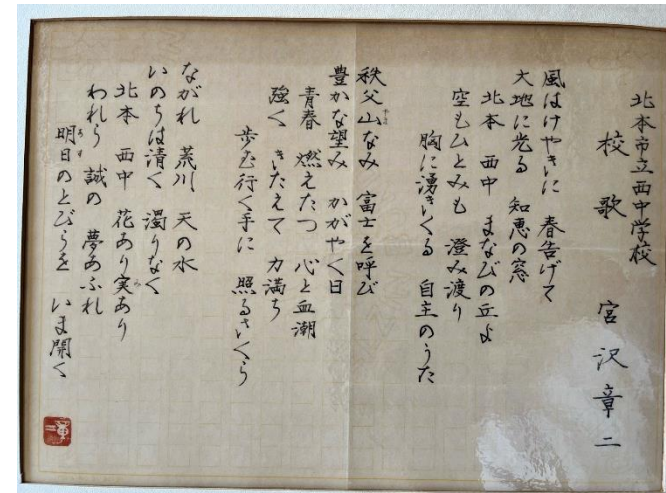 北本市立西中学校
校歌 宮沢章二
風はけやきに 春告げて
大地に光る 知恵の窓
北本 西中 まなびの丘よ
空もひとみも 澄み渡り
胸に湧きくる 自主のうた
秩父山なみ 富士を呼び
豊かな望み かがやく日
青春 燃えたつ 心と血潮
強く きたえて 力満ち
歩む行く手に 照るさくら
ながれ 荒川 天の水
いのちは清く 濁りなく
北本 西中 花あり実あり
われら 誠の 夢あふれ
明日のとびらを いま開く